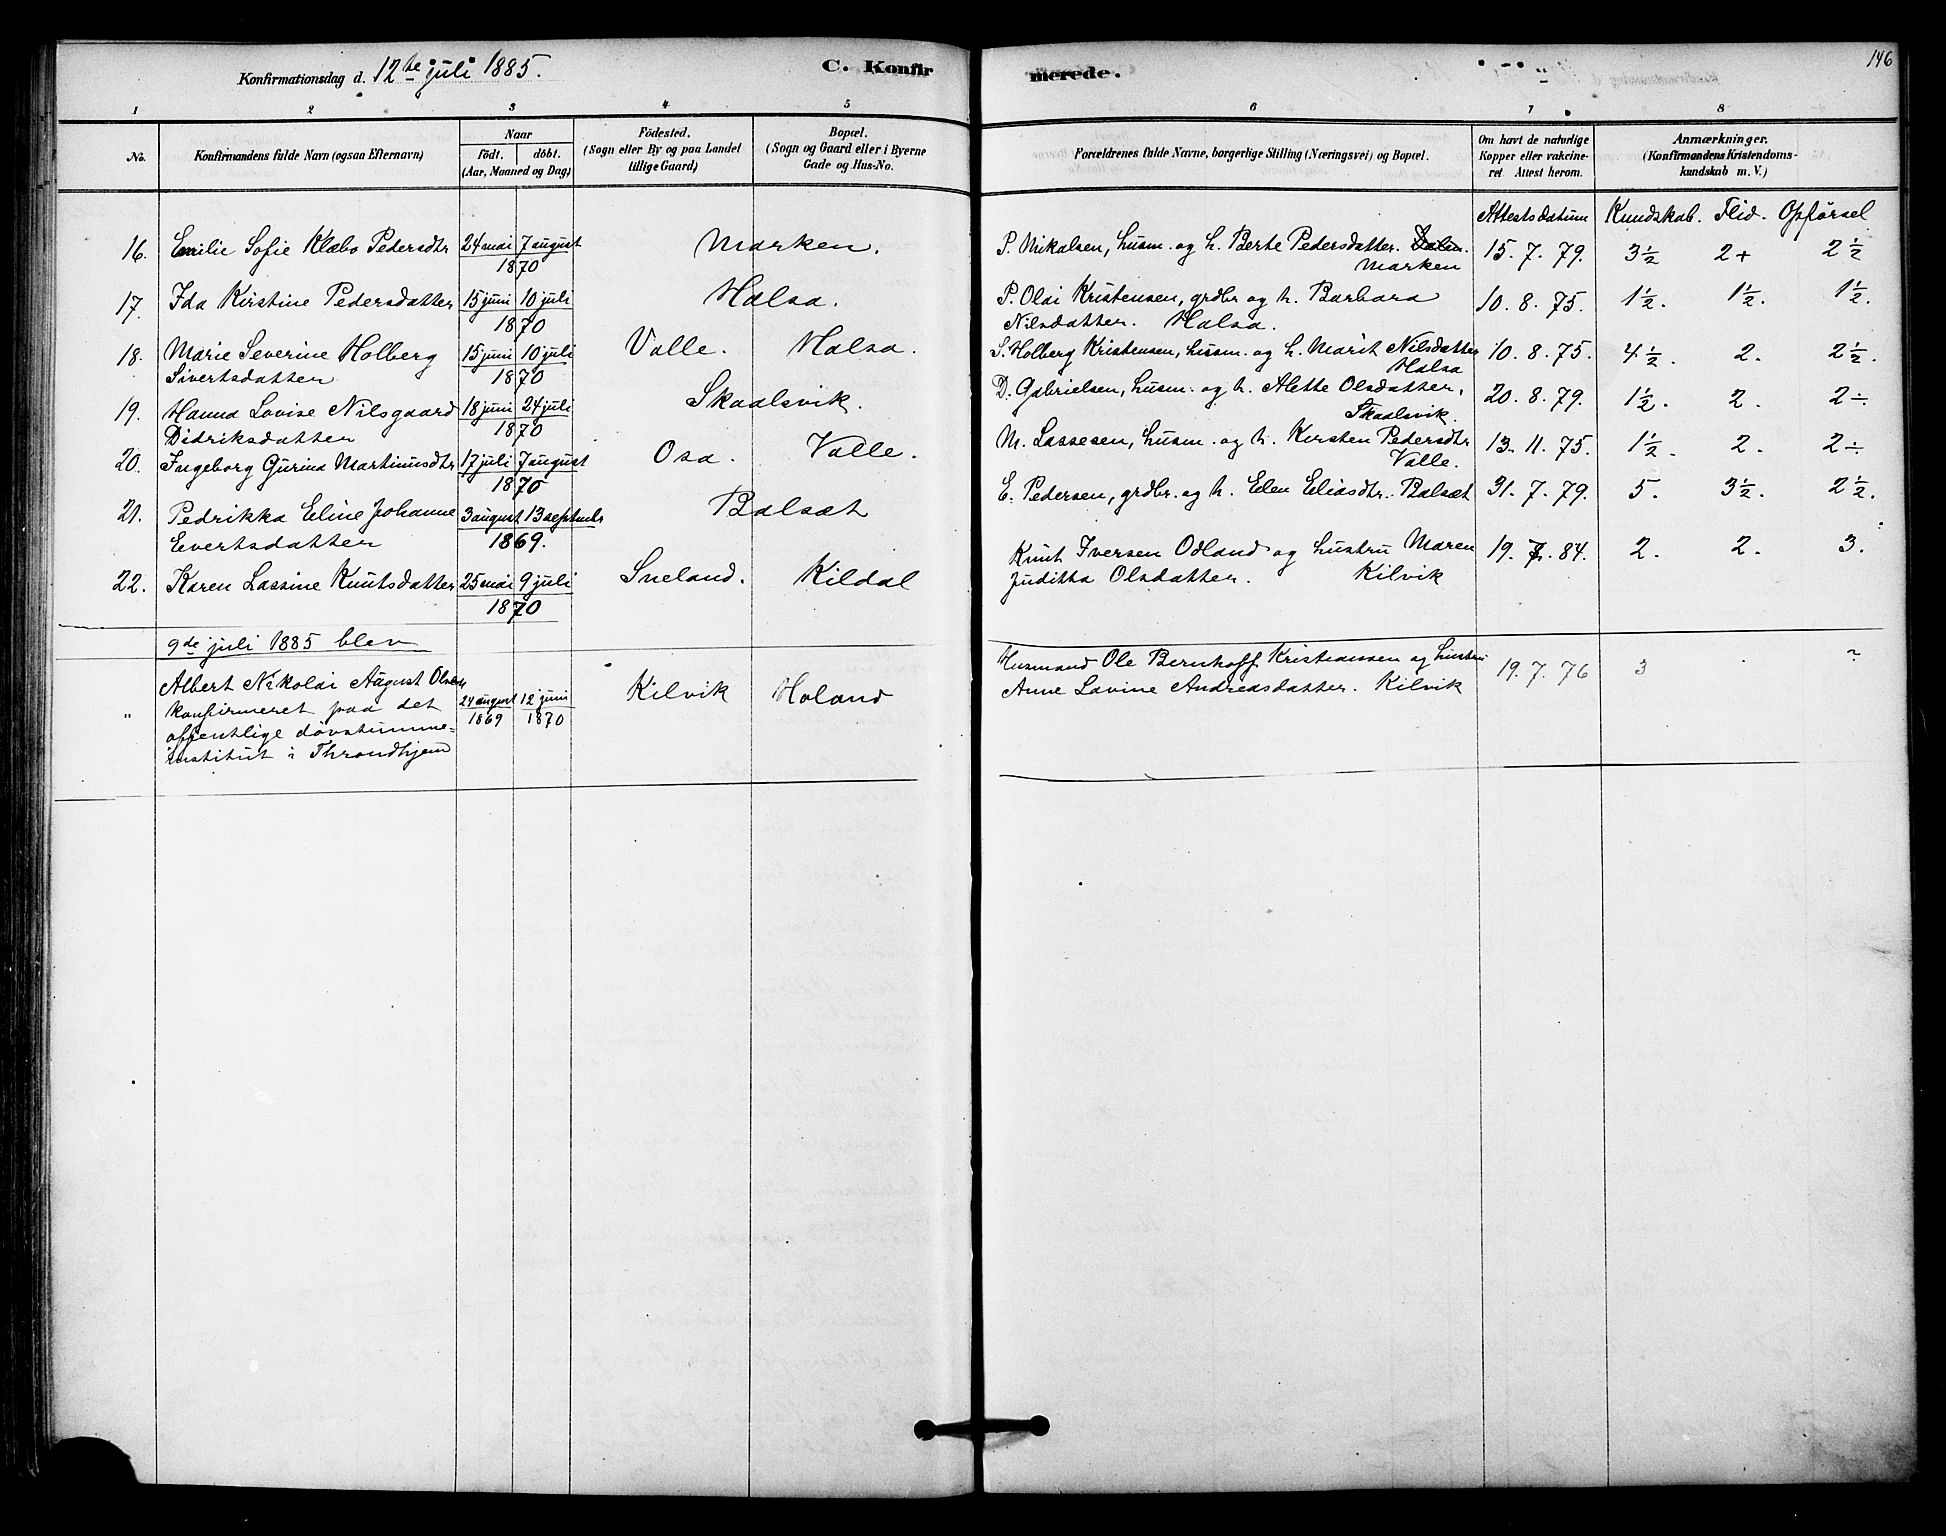 146
Konfirmationsdag d. 12te juli 1885.
C. Konfirmerede.
1 2 3 4 5 6 7 8
No.
Konfirmandens fulde Navn (ogsaa Efternavn)
Naar
födt. döbt.
(Aar, Maaned og Dag)
Födested.
(Sogn eller By og paa Landet
tillige Gaard)
Bopæl.
(Sogn og Gaard eller i Byerne
Gade og Hus-No.
Forældrenes fulde Navne, borgerlige Stilling (Næringsvei) og Bopæl.
Om havt de naturlige
Kopper eller vakcine-
ret Attest herom.
Anmærkninger.
(Konfirmandens Kristendoms-
kundskab m. V.)
Attestsdatum Kundskab. Flid. Opførsel
16. Emilie Sofie Klæbo Pedersdtr 24 mai 7 august Marken. P. Nikalsen, husm. og h. Berte Pedersdatter. Dalen. 15. 7. 79. 3½ 2+ 2½
1870 Marken
17. Ida Kirstine Pedersdatter 15 juni 10 juli Halsa. P. Olai Kristensen, grdbr og h. Barbara 10. 8. 75. 1½. 1½. 1½.
1870 Nilsdatter. Halsa.
18. Marie Severine Holberg 15 juni 10 juli Valle. Halsa. S. Holberg Kristensen, husm. og h. Marit Nilsdatter 10. 8. 75. 4½. 2. 2½.
Sivertsdatter 1870 Halsa
19. Hanna Lovise Nilsgaard 18 juni 24 juli Skaalsvik. D. Gabrielsen, husm. og h. Alette Olsdatter, 20. 8. 79. 1½. 2. 2÷
Didriksdatter 1870 Skaalsvik.
20. Ingeborg Gurina Martinusdtr 17 juli 7 august Osa. Valle. M. Lassesen, husm. og h. Kirsten Pedersdtr 13. 11. 75. 1½. 2. 2÷
1870 Valle.
21. Pedrikka Eline Johanne 3 august 13 septembr Balsæt E. Pedersen, grdbr. og h. Elen Eliasdtr. Balsæt 31. 7. 79. 5. 3½. 2½.
Evertsdatter 1869.
22. Karen Lassine Knutsdatter 25 mai 9 juli Sneland. Kildal Knut Iversen Odland og hustru Maren 19. 7. 84. 2. 2. 3.
1870 Juditha Olsdatter. Kilvik
9de juli 1885 blev
„ Albert Nikolai August Olsen 24 august 12 juni Kilvik Holand Husmand Ole Bernhoff Kristiansen og hustru 19. 7. 76 3
konfirmeret paa det 1869 1870 Anne Lovine Andreasdatter. Kilvik
offentlige døvstumme=
institut i Throndhjem